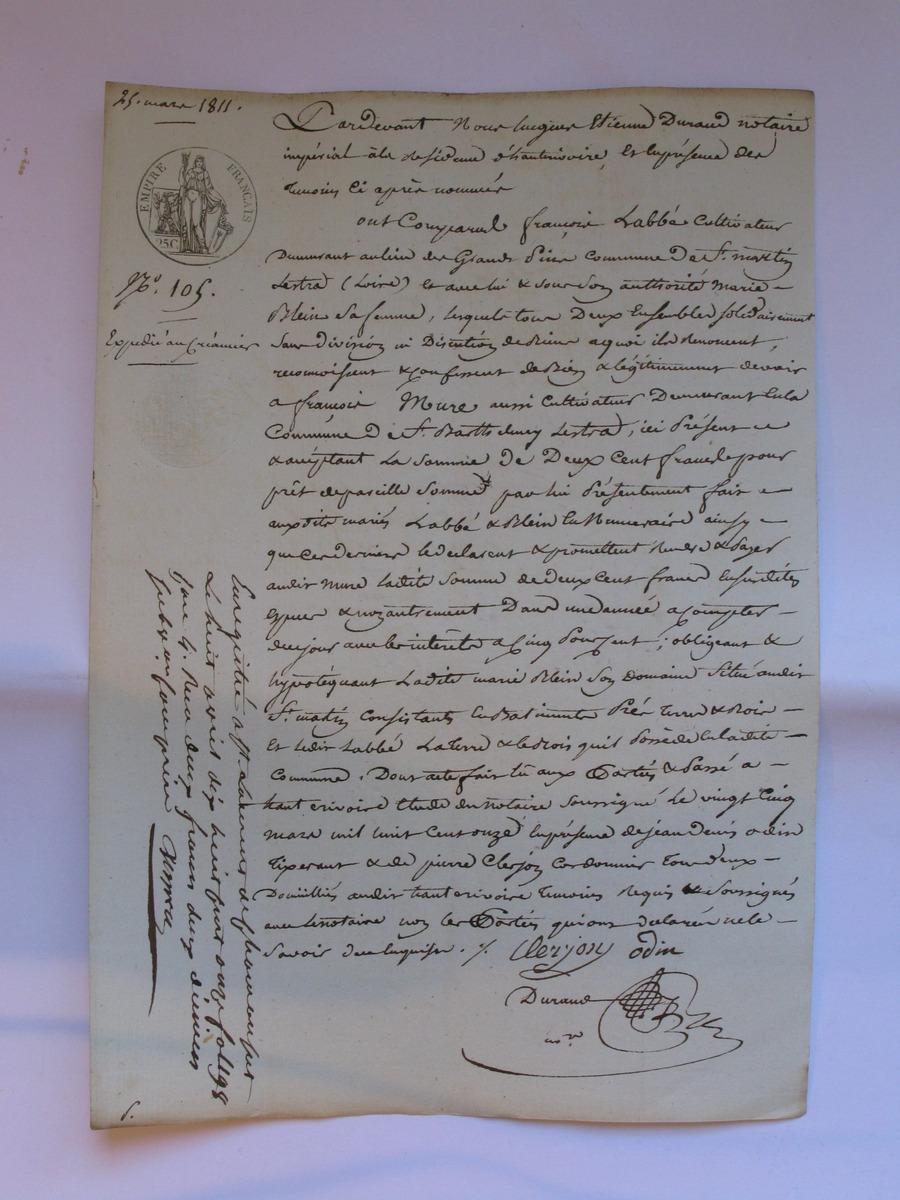 25. mars 1811.
EMPIRE FRANÇAIS
25C
N.º 105.
Expédié au Créancier
Pardevant Nous Jacques Etienne Durand notaire
impérial à la résidence d'hauterivoire, et en présence des
temoins Ci après nommés
ont Comparu françois Labbé Cultivateur
Demeurant au lieu des Grands Commune De St. martin
Lestra (Loire) et avec lui & sous Son authorité Marie
Blein Sa femme, lesquels tous Deux Ensemble solidairement
sans division ni Discution de Biens a quoi ils Renoncent,
reconnoissent & confessent de Bien & légitimement devoir
a françois Mure aussi Cultivateur Demeurant En la
Commune De St. Barthelemy Lestra, ici Présent
& acceptant La Somme De Deux Cent francs pour
prêt de pareille Somme par lui Présentement fait
aux dits mariés Labbé & Blein En Numeraire ainsy
que Ces derniers le declarent & promettent Rendre & Payer
audit Mure Ladite Somme de Deux Cent francs En susdites
Espèces & Dans une année a Compter
du jour avec les intérêts a Cinq Pour Cent; obligeant &
hypotéquant Ladite marie Blein Son Domaine Situé audit
St. martin Consistant En Batiments Prés terres & Bois
Et ledit Labbé La terre & le Bois qu'il Possède En ladite
Commune. Dont acte fait lu aux Parties & Passé a
hauterivoire Etude du Notaire Soussigné Le vingt Cinq
mars mil huit Cent onze En présence de jean Denis odin
tixerant & de pierre Clerjon Cordonnier tous deux
Domiciliés audit hauterivoire temoins Requis & Soussignés
avec le notaire non les Parties qui ont declaré ne le
Savoir de ce Enquises. /. Clerjon odin
Durand
nore
Enregistré à St. Laurent de chamousset
Le huit avril dix huit cent onze fol. 198
Case 4. Reçu deux francs deux dixiemes
subvention comprise